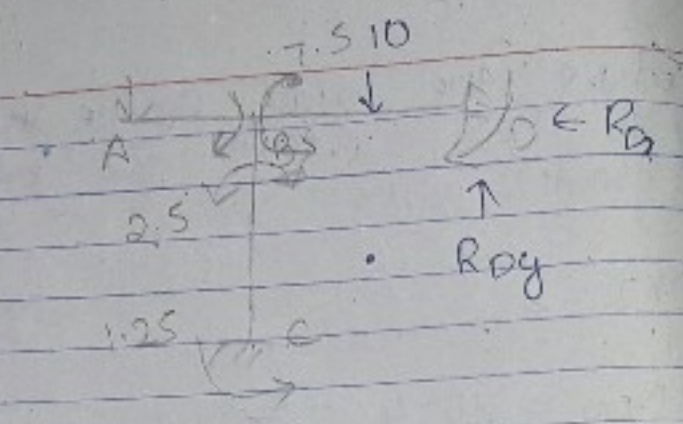 7.5 10
A B D ← RDx
2.5
RDy
1.25 C